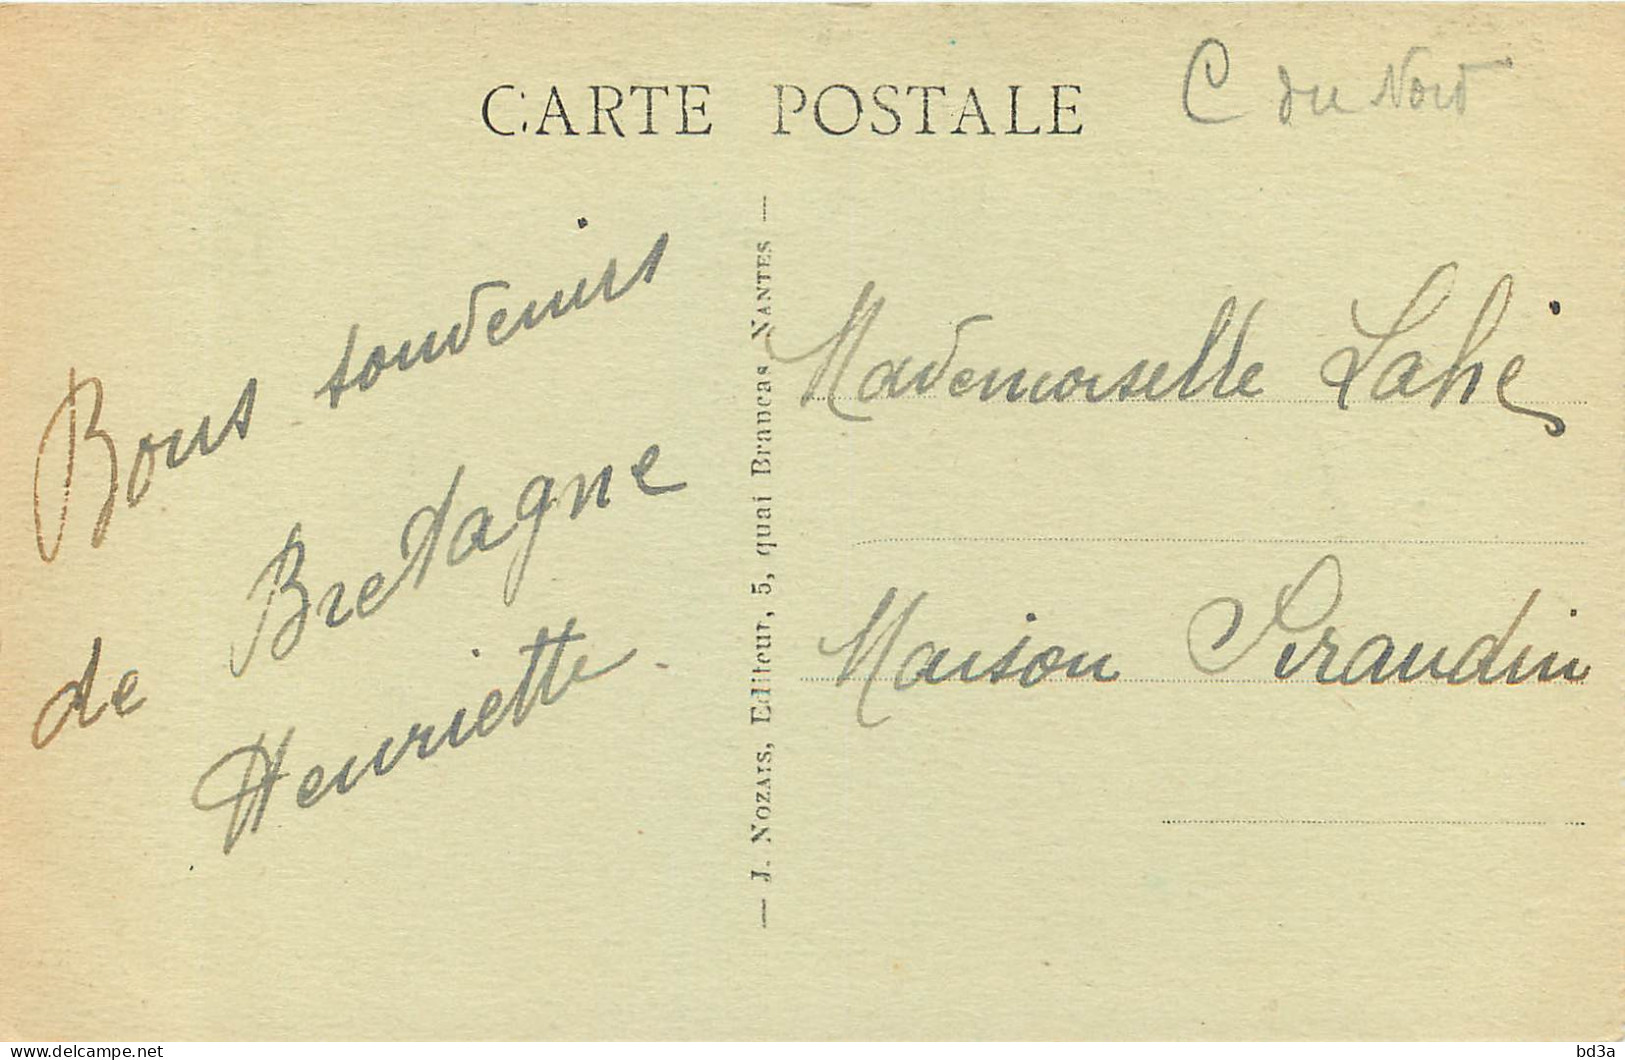 CARTE POSTALE
C du Nord
Bons souvenirs
de Bretagne
Henriette.
— J. NOZAIS, Editeur, 5, quai Brancas, NANTES —
Mademoiselle
Maison
delcampe.net
bd3a